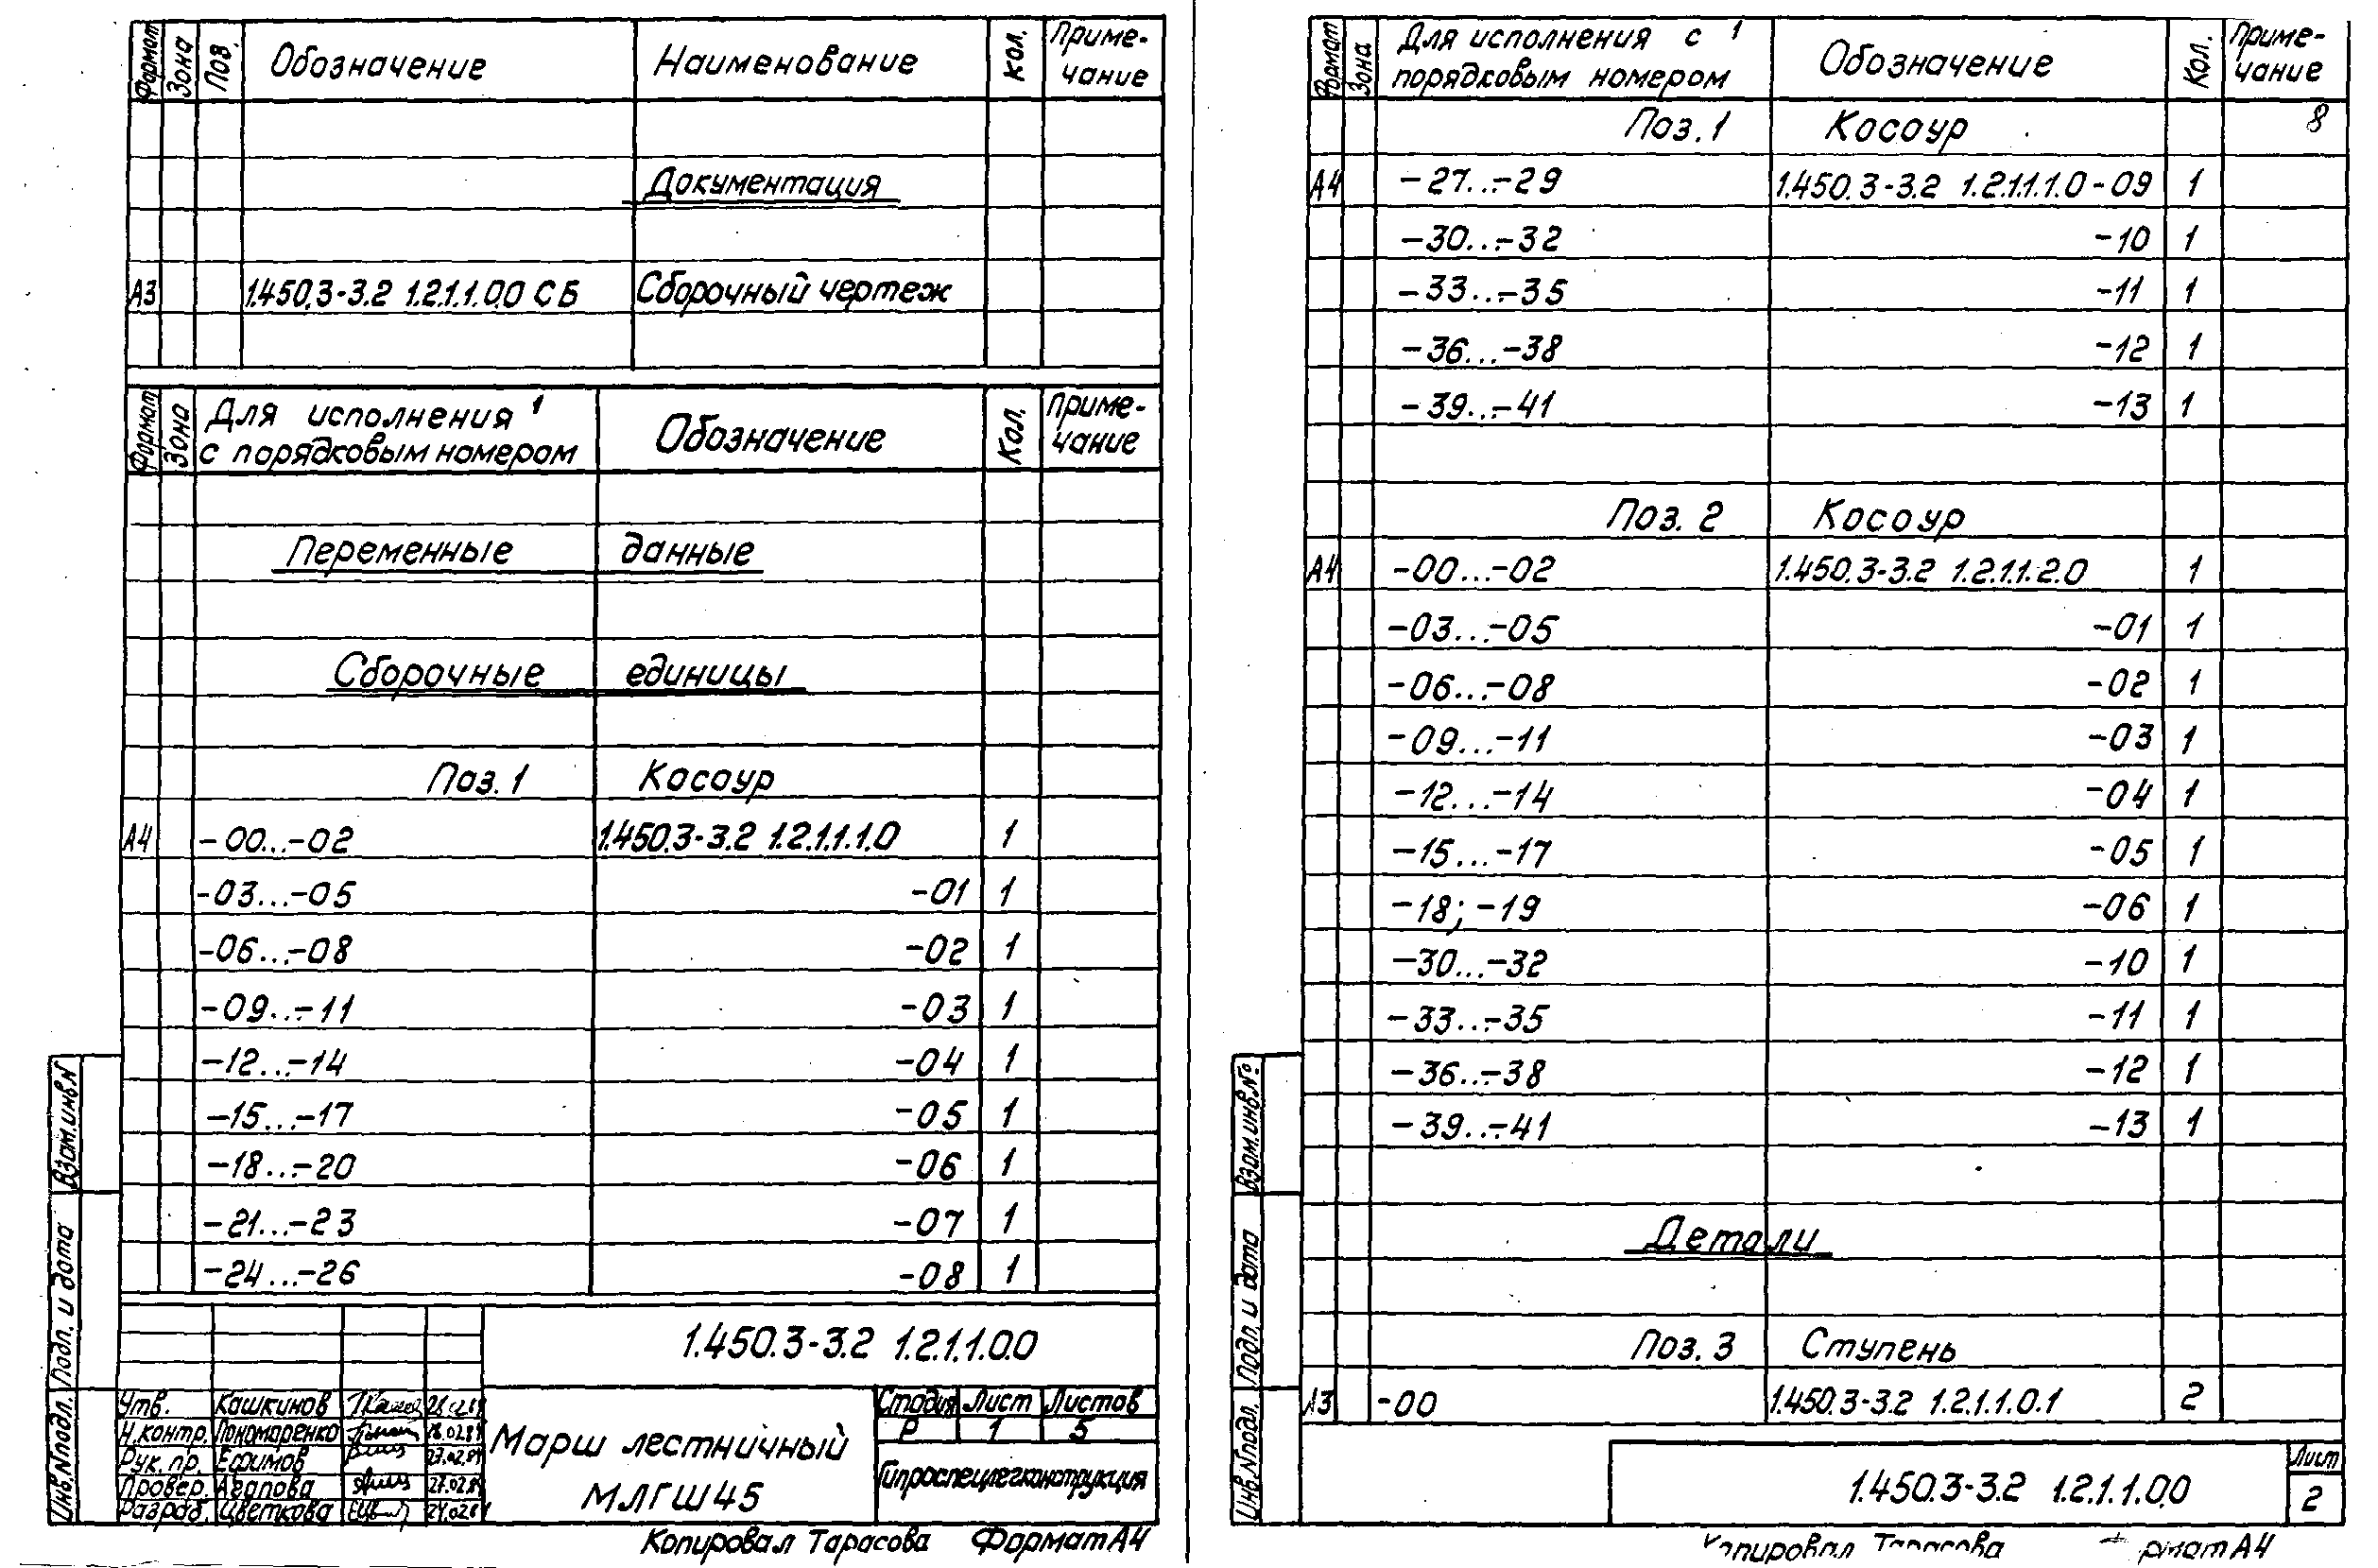 Формат Зона Поз. Обозначение Наименование Кол. Приме-
чание
Документация
А3 1.450.3-3.2 1.2.1.1.0.0 СБ Сборочный чертеж
Формат Зона Для исполнения 1 Обозначение Кол. Приме-
с порядковым номером чание
Переменные данные
Сборочные единицы
Поз. 1 Косоур
А4 -00...-02 1.450.3-3.2 1.2.1.1.1.0 1
-03...-05 -01 1
-06...-08 -02 1
-09...-11 -03 1
-12...-14 -04 1
-15...-17 -05 1
-18...-20 -06 1
-21...-23 -07 1
-24...-26 -08 1
Взам.инв.№
Подп. и дата
Инв.№подл.
1.450.3-3.2 1.2.1.1.0.0
Утв. Кашкинов
Н.контр. Пономаренко
Рук.пр. Ефимов
Провер. Агапова
Разраб. Цветкова
Марш лестничный
МЛГШ45
Стадия Лист Листов
Р 1 5
Гипроспецлегконструкция
Копировал Тарасова Формат А4
Формат Зона Для исполнения с 1 Обозначение Кол. Приме-
порядковым номером чание
Поз. 1 Косоур 8
А4 -27...-29 1.450.3-3.2 1.2.1.1.1.0-09 1
-30...-32 -10 1
-33...-35 -11 1
-36...-38 -12 1
-39...-41 -13 1
Поз. 2 Косоур
А4 -00...-02 1.450.3-3.2 1.2.1.1.2.0 1
-03...-05 -01 1
-06...-08 -02 1
-09...-11 -03 1
-12...-14 -04 1
-15...-17 -05 1
-18; -19 -06 1
-30...-32 -10 1
-33...-35 -11 1
-36...-38 -12 1
-39...-41 -13 1
Детали
Поз. 3 Ступень
А3 -00 1.450.3-3.2 1.2.1.1.0.1 2
Взам.инв.№
Подп. и дата
Инв.№подл.
1.450.3-3.2 1.2.1.1.0.0
Лист
2
Копировал Тарасова Формат А4